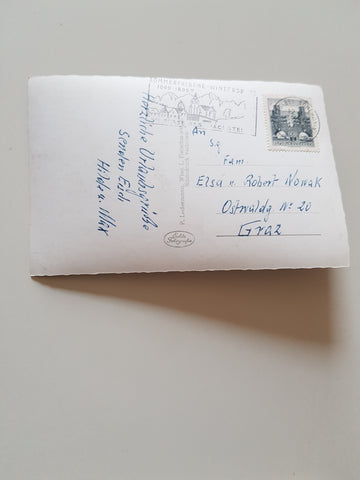 SOMMERFRISCHE WINTERSP
Herzliche Urlaubsgrüße
senden Euch
Hilde u. Max
An
S.g.
Fam.
Elsa u. Robert Nowak
Ostwaldg No 20
Graz